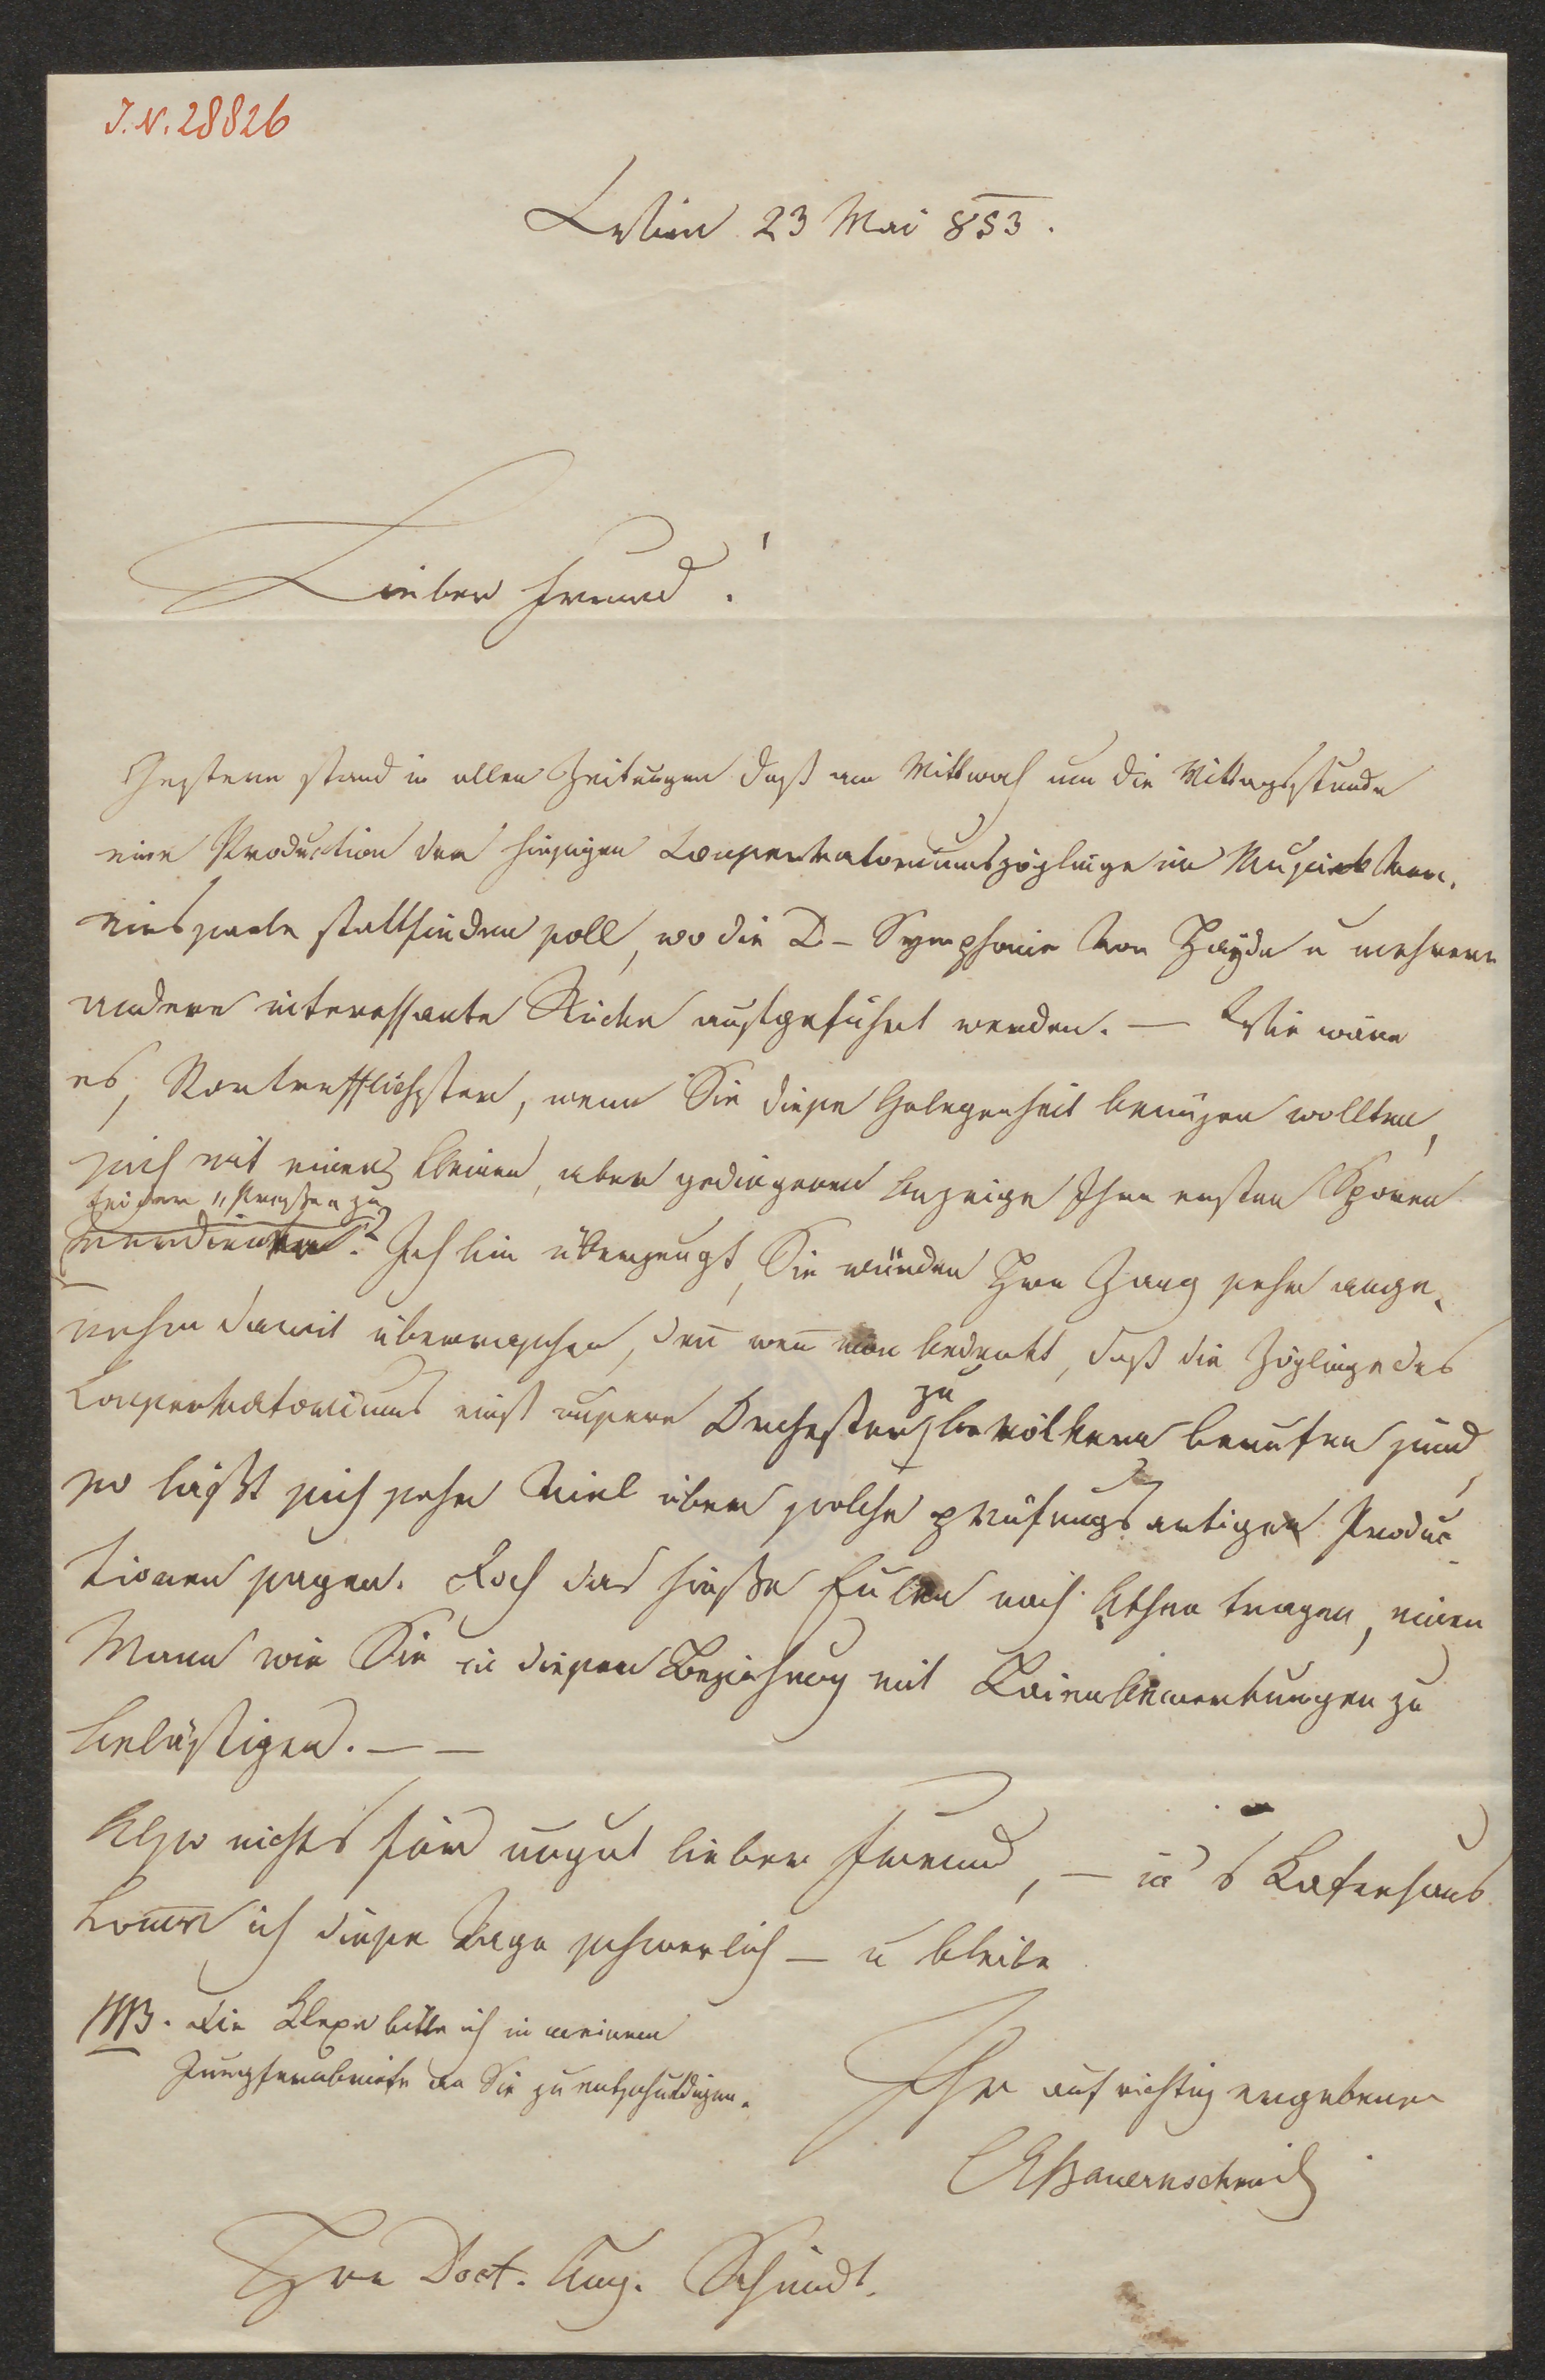 J. N. 28826
Wien 23 Mai 853.
Lieber Freund!
Gestern stand in allen Zeitungen daß am Mittwoch um die Mittagsstunde
eine Production der hiesigen Conservatoriumszöglinge im Musikver-
einssaale stattfinden soll, wo die D-Symphonie von Haydn u mehrere
andere interessante Stücke aufgeführt werden. — Wie wäre
es, Vortrefflichster, wenn Sie diese Gelegenheit benüzen wollten,
sich mit einer kleinen, aber gediegenen Anzeige Ihre ersten Sporen
bei der „Presse" zu
verdienen? Ich bin überzeugt, Sie würden Hrn Zang sehr ange-
nehm damit überraschen, den̄ wen̄ man bedenkt, daß die Zöglinge des
Conservatoriums einst unsere Orchester zu bevölkern berufen sind,
so läßt sich sehr Viel über solche prüfungsartigen Produc-
tionen sagen. Doch das hieße Eulen nach Athen tragen, einen
Mann wie Sie in dieser Beziehung mit Laienbemerkungen zu
belästigen. — —
Also nichts für ungut lieber Freund, — in's Kafeehaus
kom̄e ich diese Tage schwerlich — u bleibe
NB. Die Klexe bitte ich in meinem
Jungfernbriefe an Sie zu entschuldigen.
Ihr aufrichtig ergebener
Bauernschmid
Hrn Doct. Aug. Schmidt.